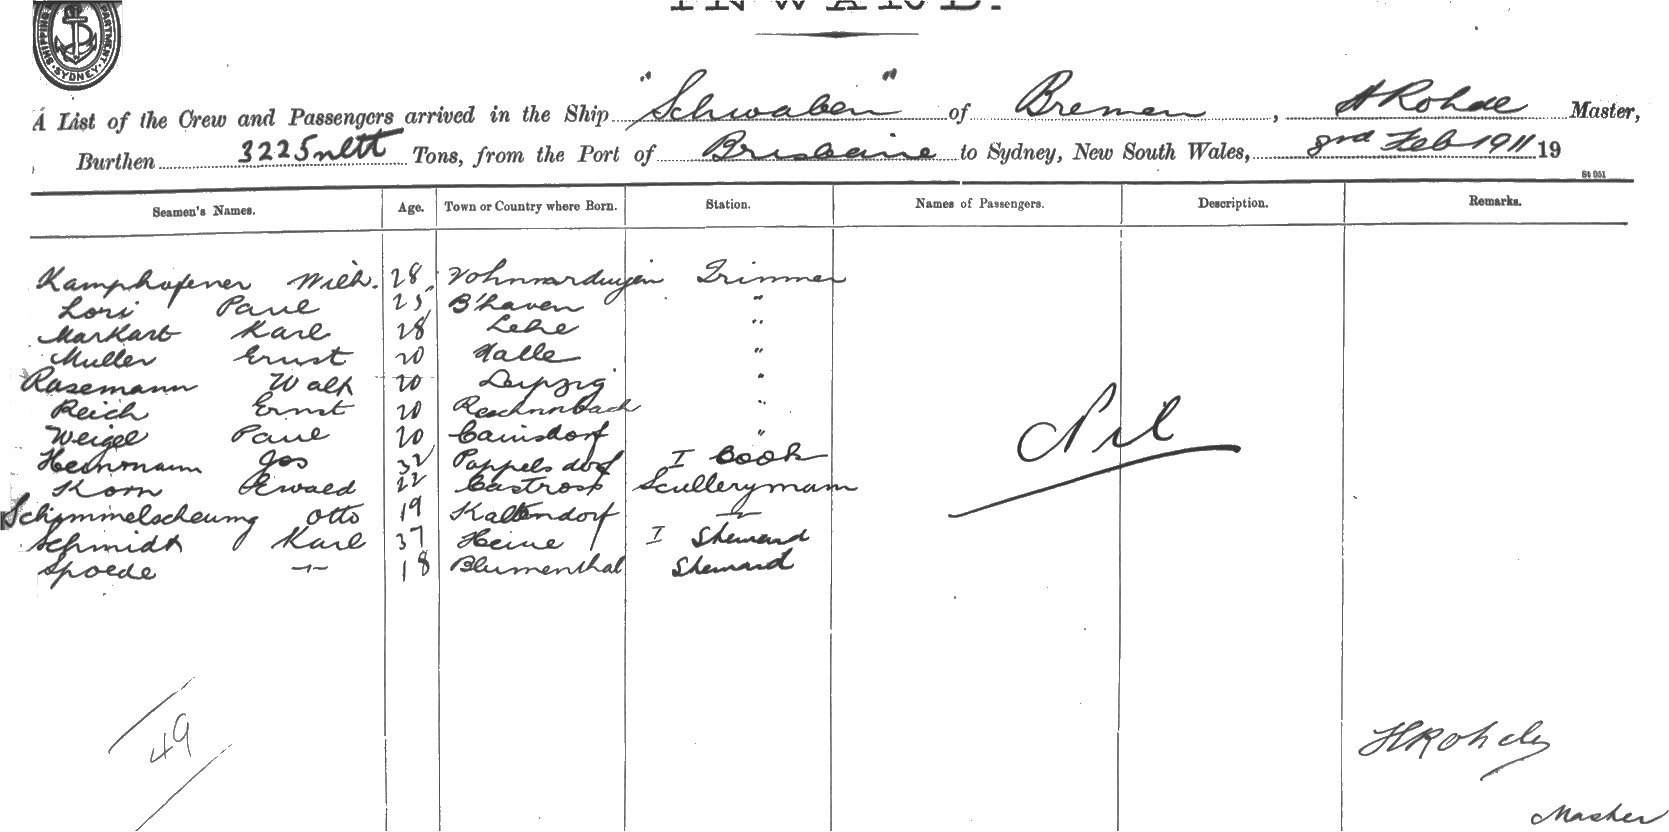 INWARD.
SHIPPING DEPARTMENT SYDNEY
A List of the Crew and Passengers arrived in the Ship "Schwaben" of Bremen, H Rohde Master,
Burthen 3225 nett Tons, from the Port of Brisbane to Sydney, New South Wales, 3rd Feb 1911 19
St 051
Seamen's Names. Age. Town or Country where Born. Station. Names of Passengers. Description. Remarks.
Kamphofener Wilh. 28 Trimmer
Lori Paul 25 B'haven "
Markart Karl 28 Lehe "
Muller Ernst 20 Halle "
Rasemann Walt 20 Leipzig "
Reich Ernst 20 "
Weigel Paul 20 Cainsdorf "
Nil
Heinmann Jos 32 Poppelsdorf I Cook
Korn Ewald 22 Castrop Scullerymann
Schimmelscheumg Otto 19 Kaltendorf
Schmidt Karl 37 Heine I Steward
Spoede 18 Blumenthal Steward
49
H Rohde
Master